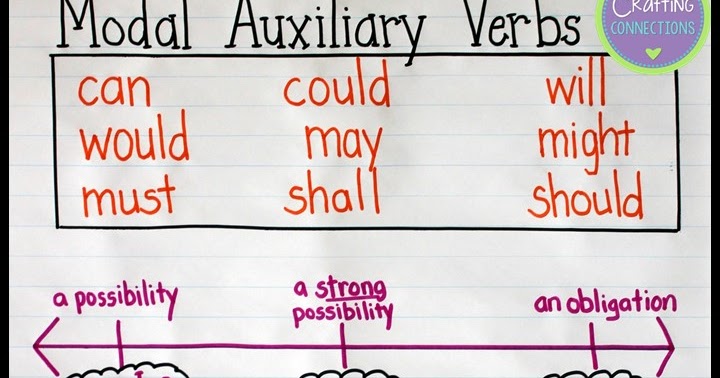 Crafting
CONNECTIONS
Modal Auxiliary Verbs
can could will
would may might
must shall should
a possibility
a strong
possibility
an obligation